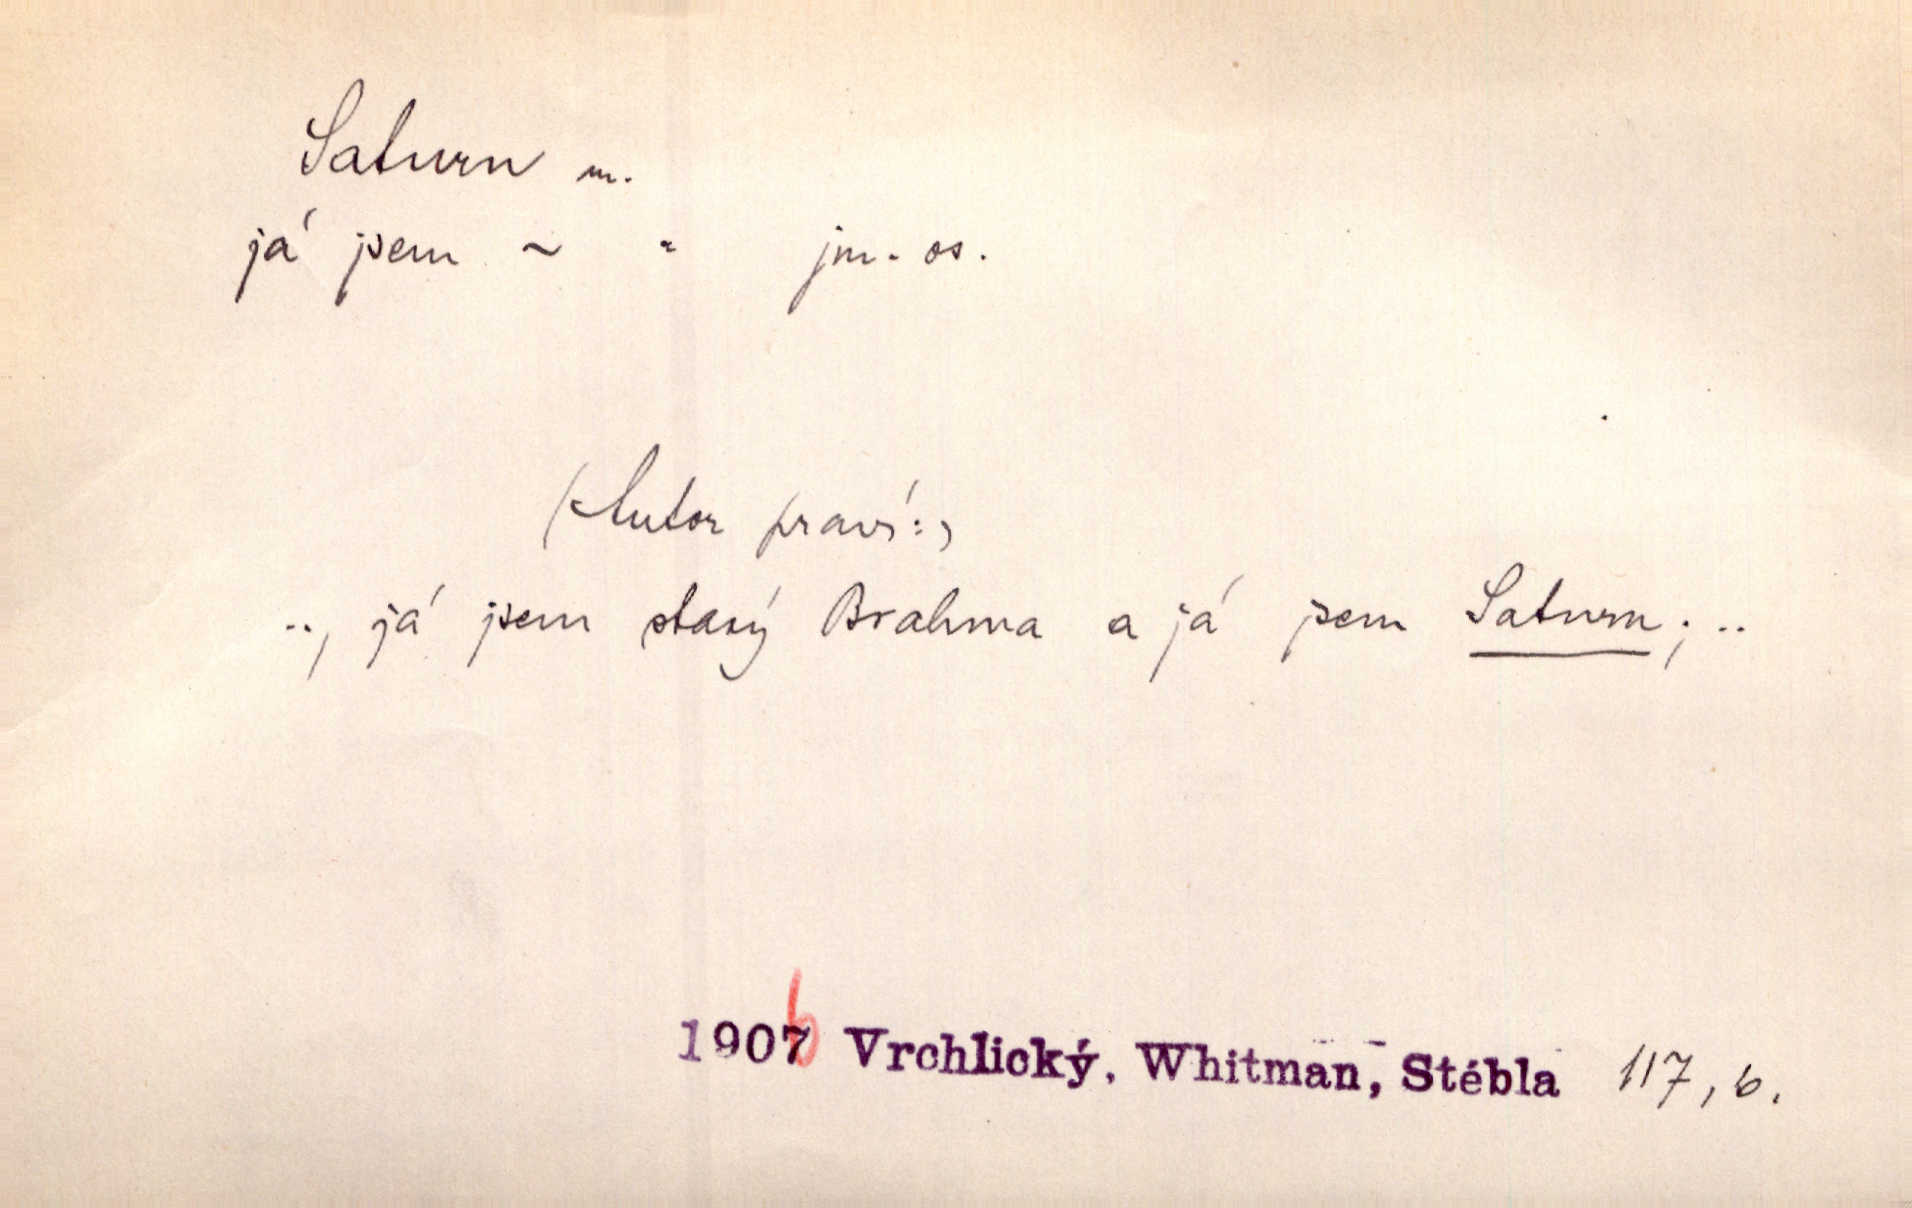 Saturn m.
já jsem ~ - jm. os.
(Autor praví:)
.., já jsem starý Brahma a já jsem Saturn; ..
1906 Vrchlický, Whitman, Stébla 117, 6.